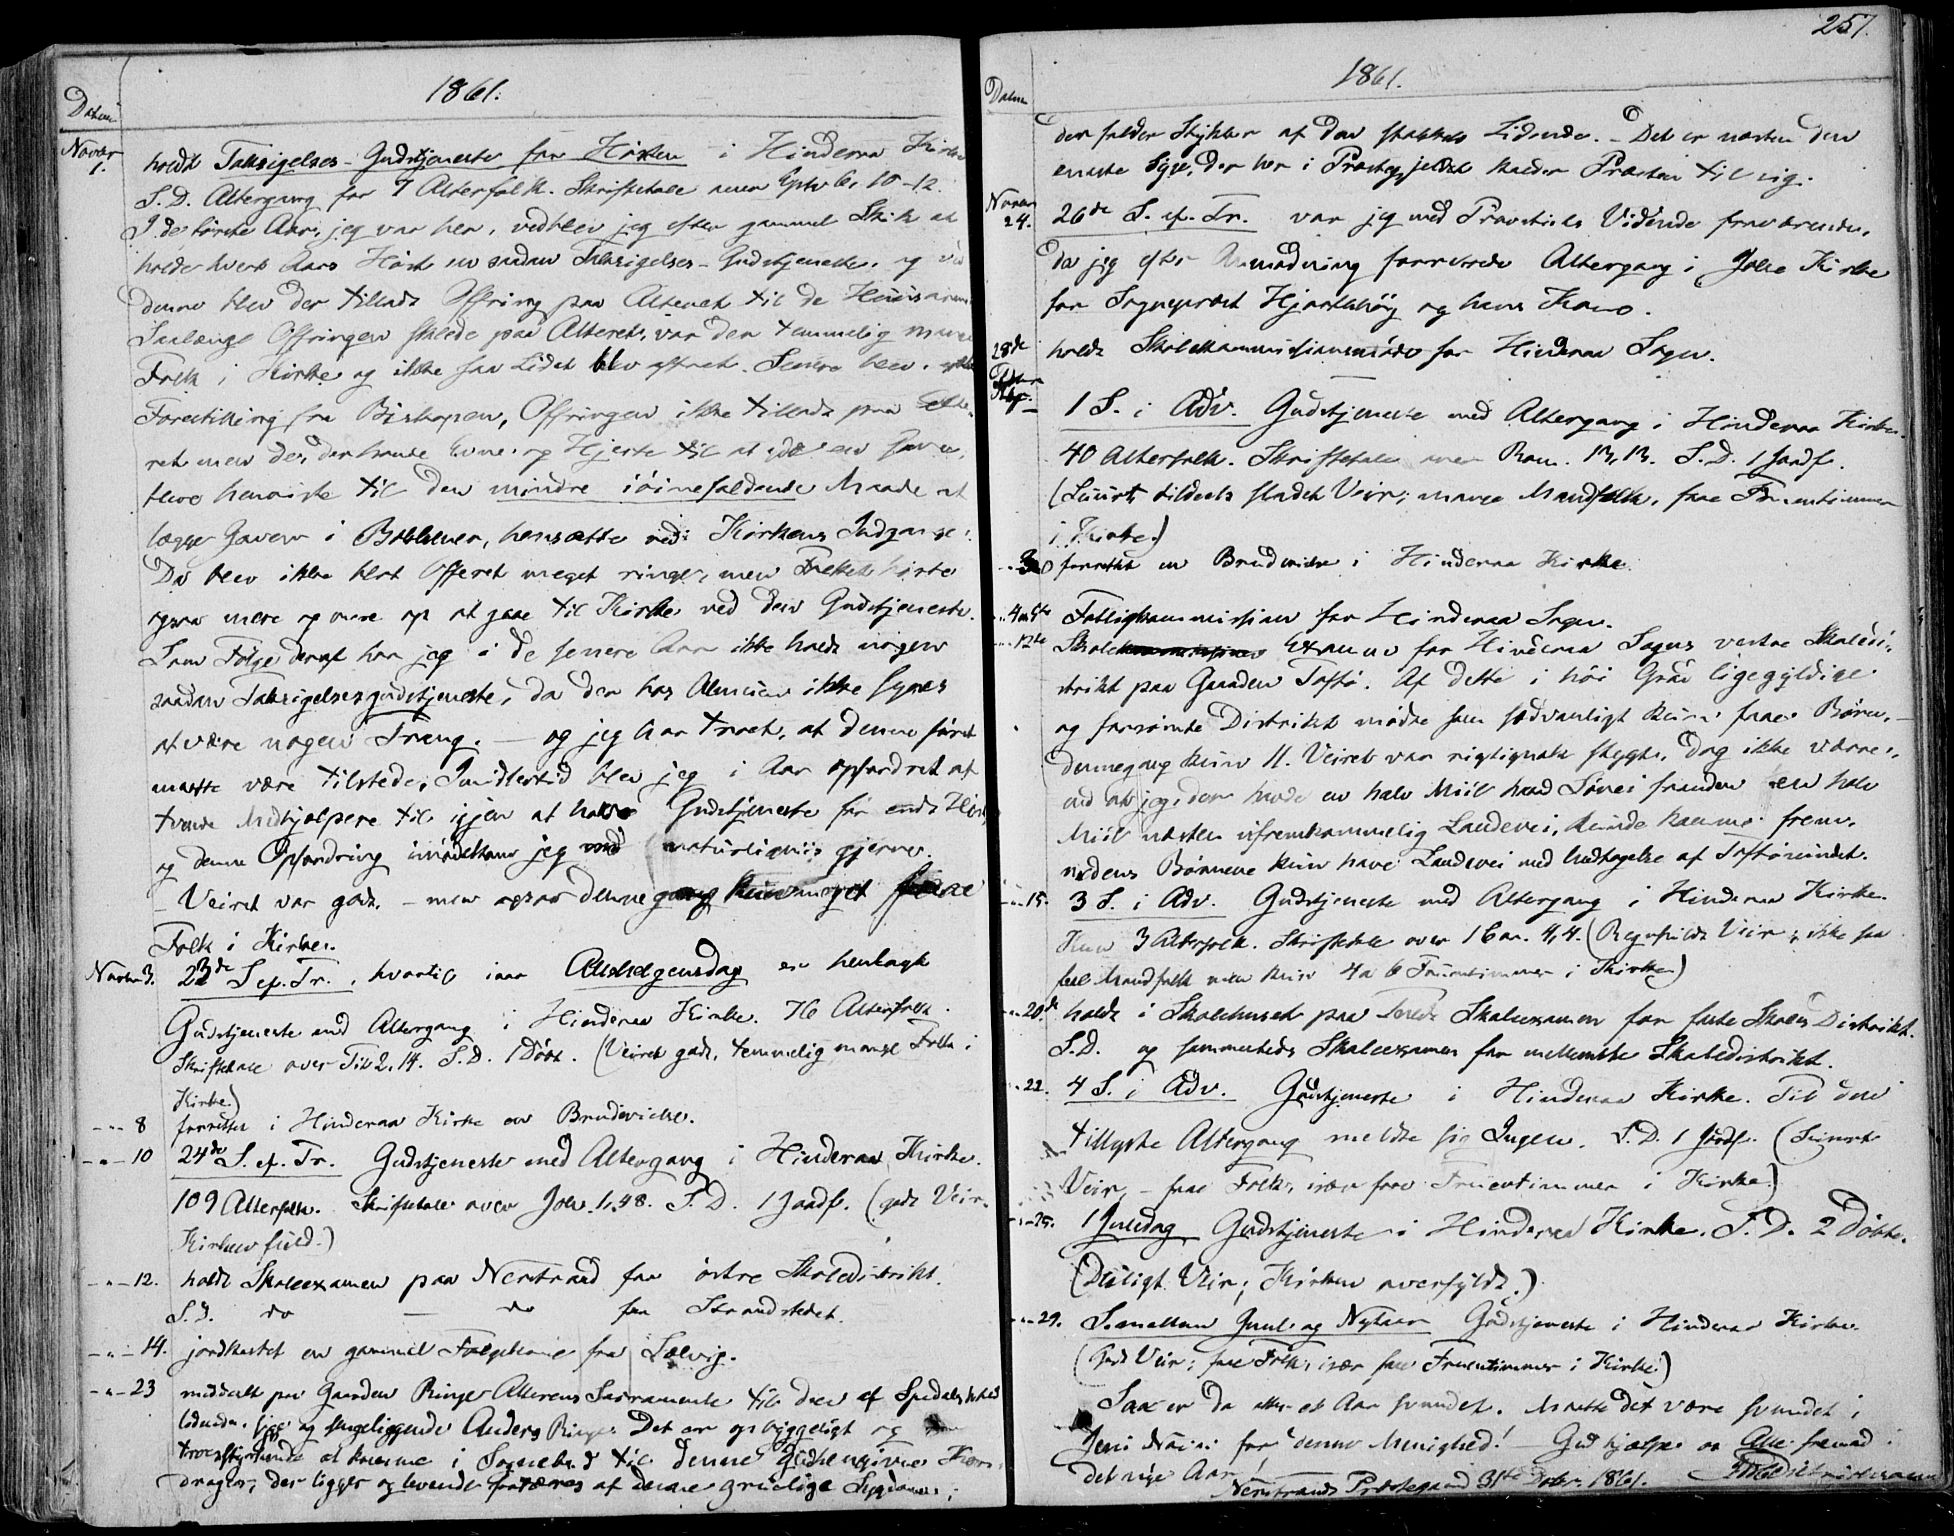 1861.
Datum
Novbr 1.
holdt Taksigelses-Gudstjeneste for Høsten i Hinderaa Kirke
S. D. Altergang for 7 Alterfolk. Skriftetale over 10-12.
I de første Aar, jeg var her, vedblev jeg efter gammel Skik at
holde hvert Aars Høst en saadan Taksigelses-Gudstjeneste, og ved
denne blev der tilladt Offring paa Alteret til de Huusarme
Saalænge Offringen skede paa Alteret, var der temmelig mange
Folk i Kirke og ikke saa Lidet blev offret. Senere blev, efter
Forestilling fra Biskopen, Offringen ikke tilladt paa Alte-
ret men de, der havde Evne og Hjerte til at yde en Gave,
bleve henviste til den mindre iøinefaldende Maade at
lægge Gaven i Bøssener, hensatte ved Kirkens Indgange.
Da blev ikke blot Offeret meget ringe, men Folket hørte
ogsaa mere og mere op at gaae til Kirke ved den Gudstjeneste.
Som Følge deraf har jeg i de senere Aar ikke holdt nogen
saadan Taksigelsesgudstjeneste, da der hos Almuen ikke synes
at være nogen Trang. — og jeg har troet, at denne først
maatte være tilstede. Imidlertid blev jeg i Aar opfordret af
tvende Medhjælpere til igjen at holde Gudstjeneste for endt Høst,
og denne Opfordring imødekom jeg naturligviis gjerne.
- Veiret var godt, - men ogsaa denne gang kun meget faae
Folk i Kirke.
Novbr 3. 23de S. ef. Tr., hvortil iaar Allehelgensdag er henlagt
Gudstjeneste med Altergang i Hinderaa Kirke. 76 Alterfolk.
Skriftetale over Tit. 2, 14. S. D. 1 Døbt. (Veiret godt, temmelig mange Folk i
Kirke.)
-"- 8 forrettet i Hinderaa Kirke en Brudevielse.
-"- 10 24de S. ef. Tr. Gudstjeneste med Altergang i Hinderaa Kirke.
109 Alterfolk. Skriftetale over Joh. 1, 48. S. D. 1 Jordf. (godt Veir,
Kirken fuld.)
-"- 12. holdt Skoleexamen paa Nerstrand for østre Skoledistrikt.
S. D. do — do for Strandstedet.
-"- 14. jordkastet en gammel Folgekone fra Solvig.
-"- 23 meddeelt paa Gaarden Ringe Alterens Sacramente til den af Spedalskhed
lidende, syge og sengeliggende Anders Ringe. Det er opbyggeligt og
troesstyrkende at komme i Sognebud til denne Gudhengivne Kors-
drager, der ligger og levende fortæres af denne gruelige Sygdom;
257.
1861.
Datum
der falder Stykker af den stakkels Lidende. - Det er næsten den
eneste Syge, der her i Præstegjeldet kalder Præsten til sig.
Novbr 24. 26de S. ef. Tr. var jeg med Provstiets Vidende fraværende,
da jeg efter Anmodning forrettede Altergang i Jelse Kirke
for Sognepræst Hjorthøy og hans Kone.
28de holdt Skolekommissionsmøde for Hinderaa Sogn.
1 S. i Adv. Gudstjeneste med Altergang i Hinderaa Kirke.
40 Alterfolk. Skriftetale over Rom. 13, 13. S. D. 1 Jordf.
(Suurt tildeels Veir; mange Mandfolk, faae Fruentimmer
i Kirke.)
3 forrettet en Brudevielse i Hinderaa Kirke.
4 Fattigkommission for Hinderaa Sogn.
12te Skole Examen for Hinderaa Sogns vestre Skoledi-
strikt paa Gaarden Toftø. Af dette i høi Grad ligegyldige
og forsømte Distrikt mødte som sædvanligt kun faae Børn, -
dennegang kun 11. Veiret var rigtignok stygt, dog ikke værre,
end at jeg, der havde en halv Miil haard Søvei foruden en halv
Miil næsten ufremkommelig Landevei, kunde komme frem,
medens Børnene kun have Landevei med Undtagelse af Toftøsundet.
-"- 15. 3 S. i Adv. Gudstjeneste med Altergang i Hinderaa Kirke.
Kun 3 Alterfolk. Skriftetale over 1 Cor. 4, 4. (Regnfuldt Veir; ikke saa
faa Mandfolk men kun 4 a 6 Fruentimmer i Kirke)
-"- 20de holdt i Skolehuset paa Skoleexamen for faste Skoles Distrikt.
S. D. og sammesteds Skoleexamen for mellemste Skoledistrikt.
-"- 22. 4 S. i Adv. Gudstjeneste i Hinderaa Kirke. Til den
tillyste Altergang meldte sig Ingen. S. D. 1 Jordf. (Suurt
Veir, - faae Folk, især faae Fruentimmer i Kirke.)
-"- 25. 1 Juledag Gudstjeneste i Hinderaa Kirke. S. D. 2 Døbte.
(Deiligt Veir; Kirken overfyldt.)
-"- 29. S. mellem Juul og Nytaar Gudstjeneste i Hinderaa Kirke.
(Godt Veir; faae Folk, især faae Fruentimmer i Kirke)
Saa er da atter et Aar svundet. Maatte det være svundet i
Jesu Navn for denne Menighed! - Gud hjælpe os Alle fremad i
det nye Aar!
Nerstrands Præstegaard 31te Decbr. 1861.